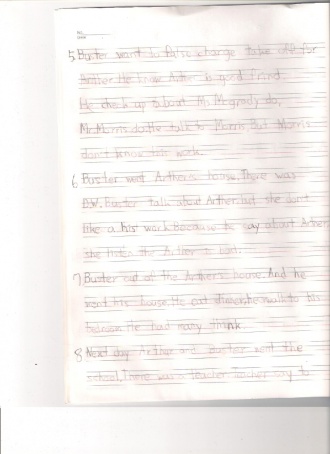 5 Buster want to false change take off for
Arther. He know Arther is good friend.
He check up about Mr. Megredy do,
Mr. Morris do. He talk to Morris. But Morris
don't know this work.
6 Buster went Arther's house. There was
D.W. Buster talk about Arther. but she don't
like a his work. Because he say about Arther,
she listen the Arther is lost.
7 Buster out of the Arther's house. And he
went his house. He eat dinner, he walk to his
bedroom. He had many think.
8 Next day Arther and Buster went the
school. There was a teacher. Teacher say to